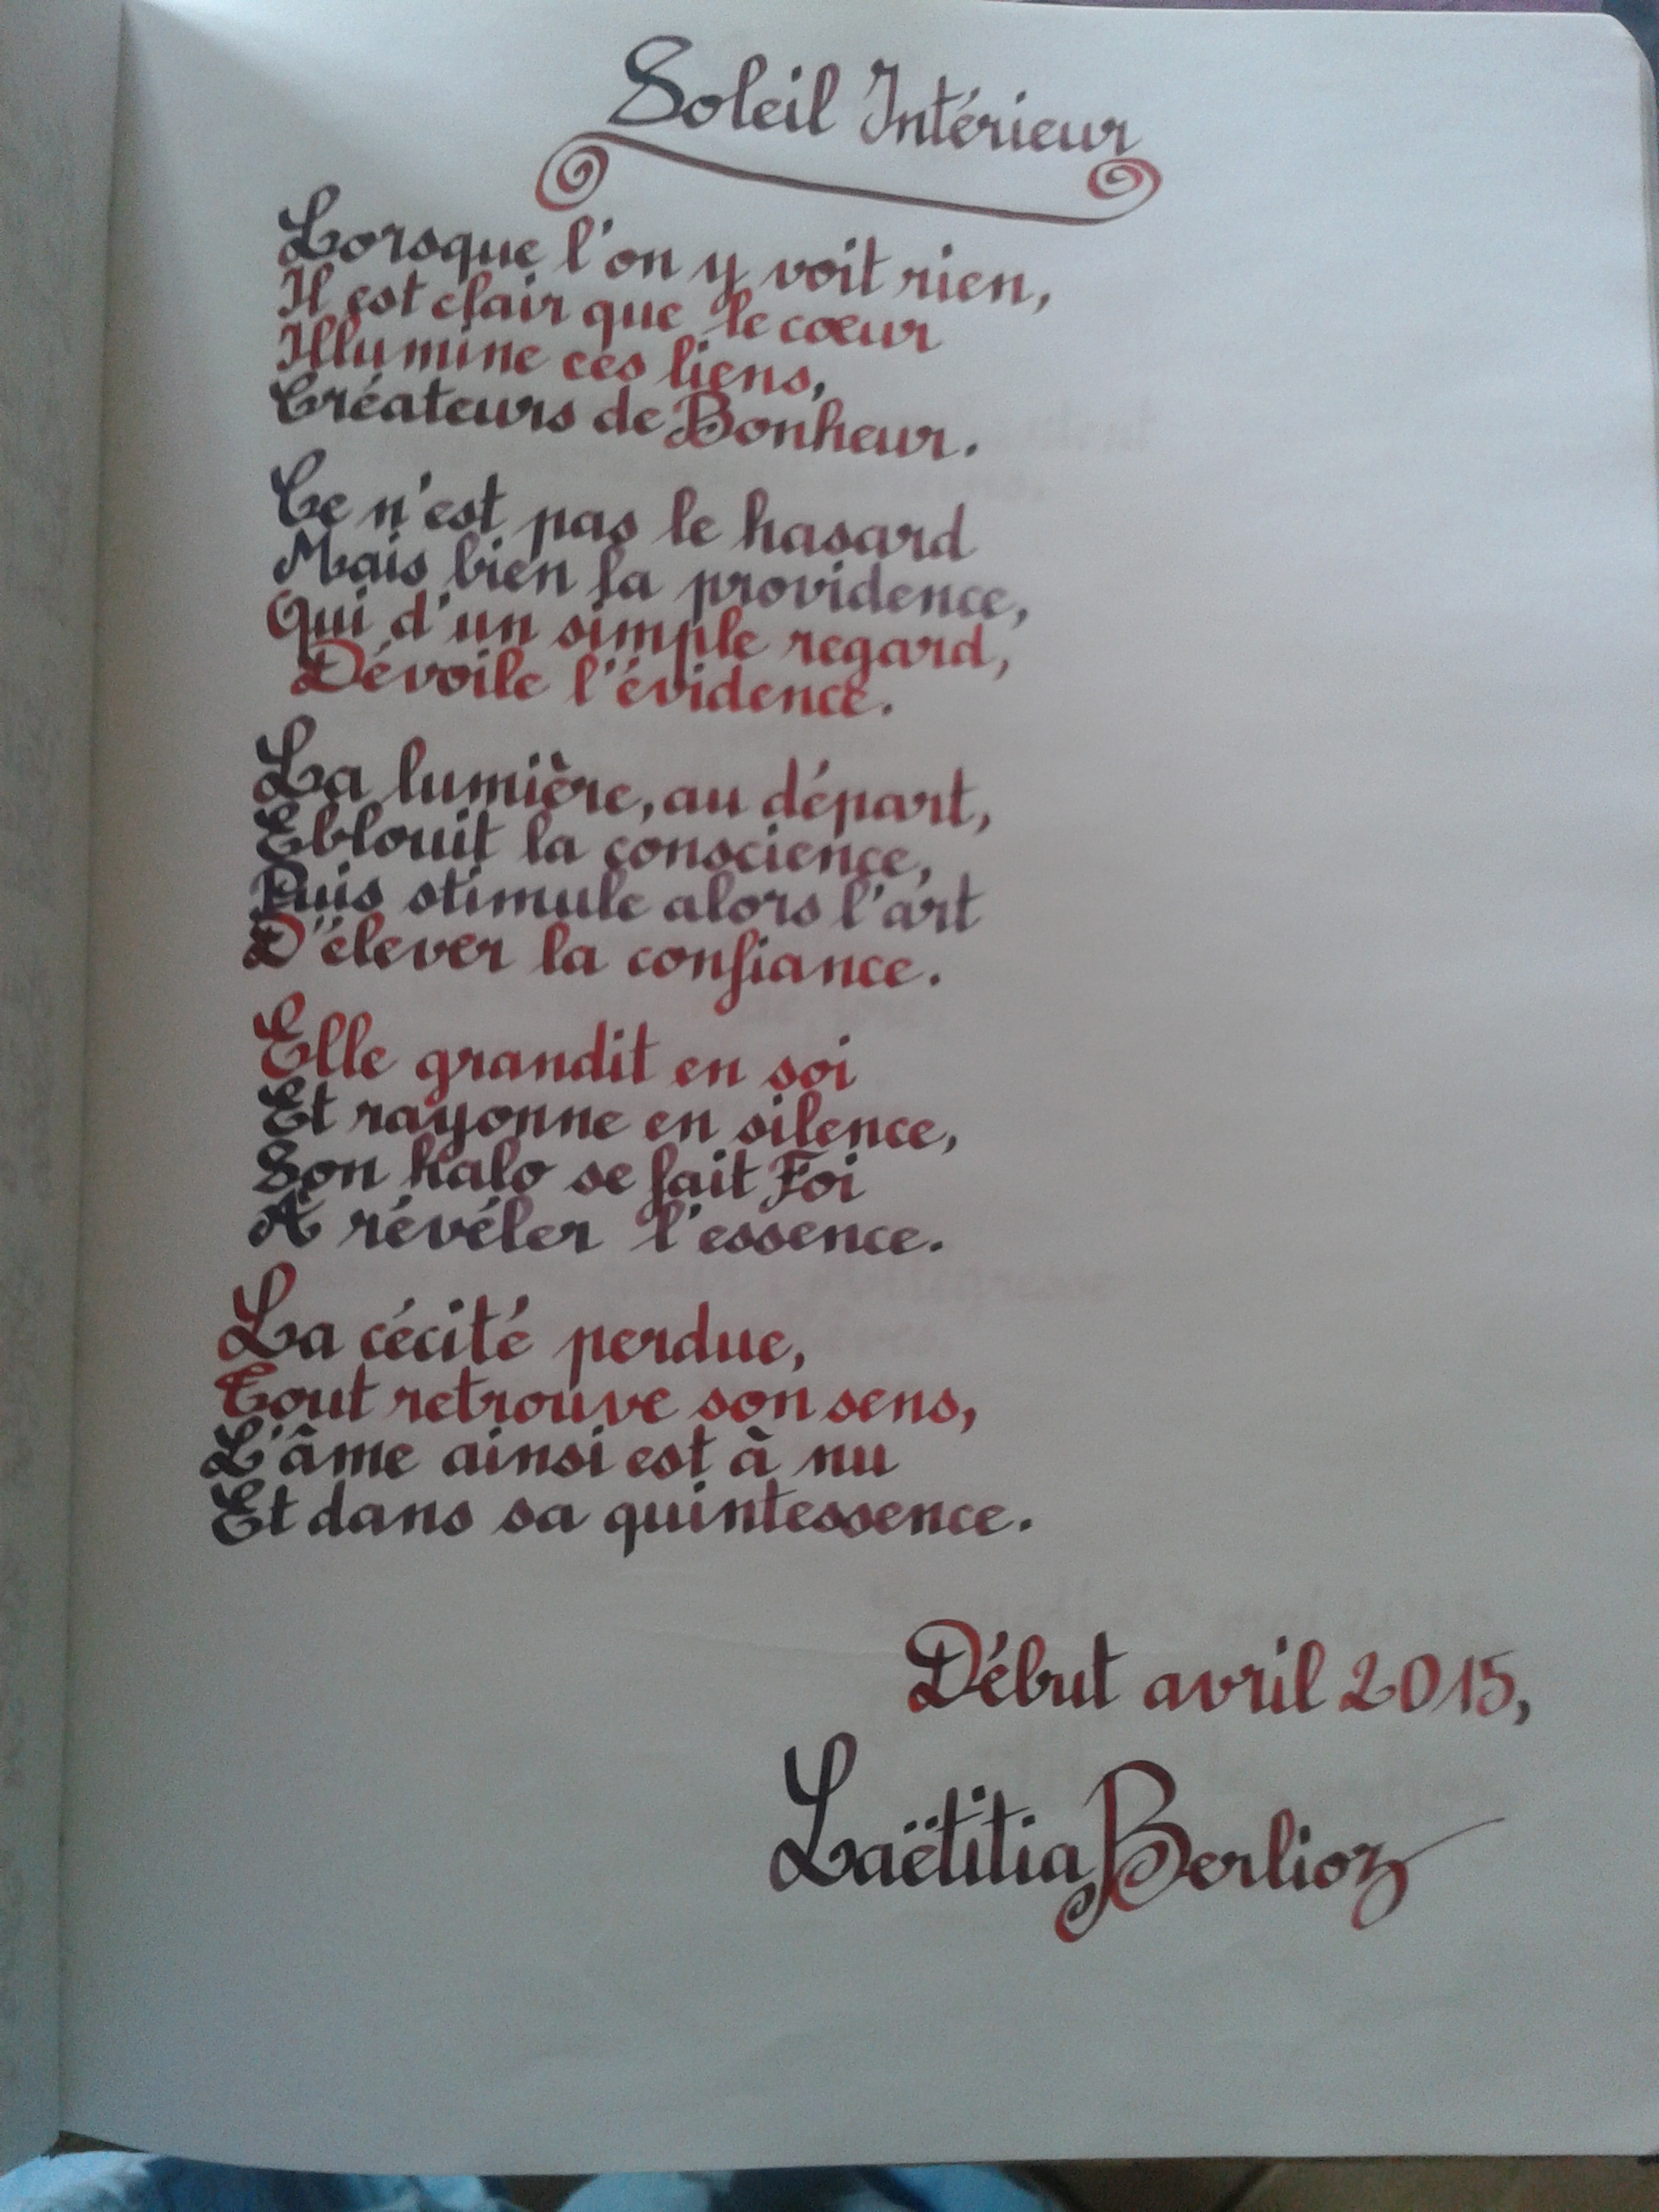 Soleil Intérieur
Lorsque l'on y voit rien,
Il est clair que le cœur
Illumine ces liens,
Créateurs de Bonheur.
Ce n'est pas le hasard
Mais bien la providence,
Qui d'un simple regard,
Dévoile l'évidence.
La lumière, au départ,
Eblouit la conscience,
Puis stimule alors l'art
D'élever la confiance.
Elle grandit en soi
Et rayonne en silence,
Son halo se fait Foi
A révéler l'essence.
La cécité perdue,
Tout retrouve son sens,
L'âme ainsi est à nu
Et dans sa quintessence.
Début avril 2015,
Laëtitia Berlioz